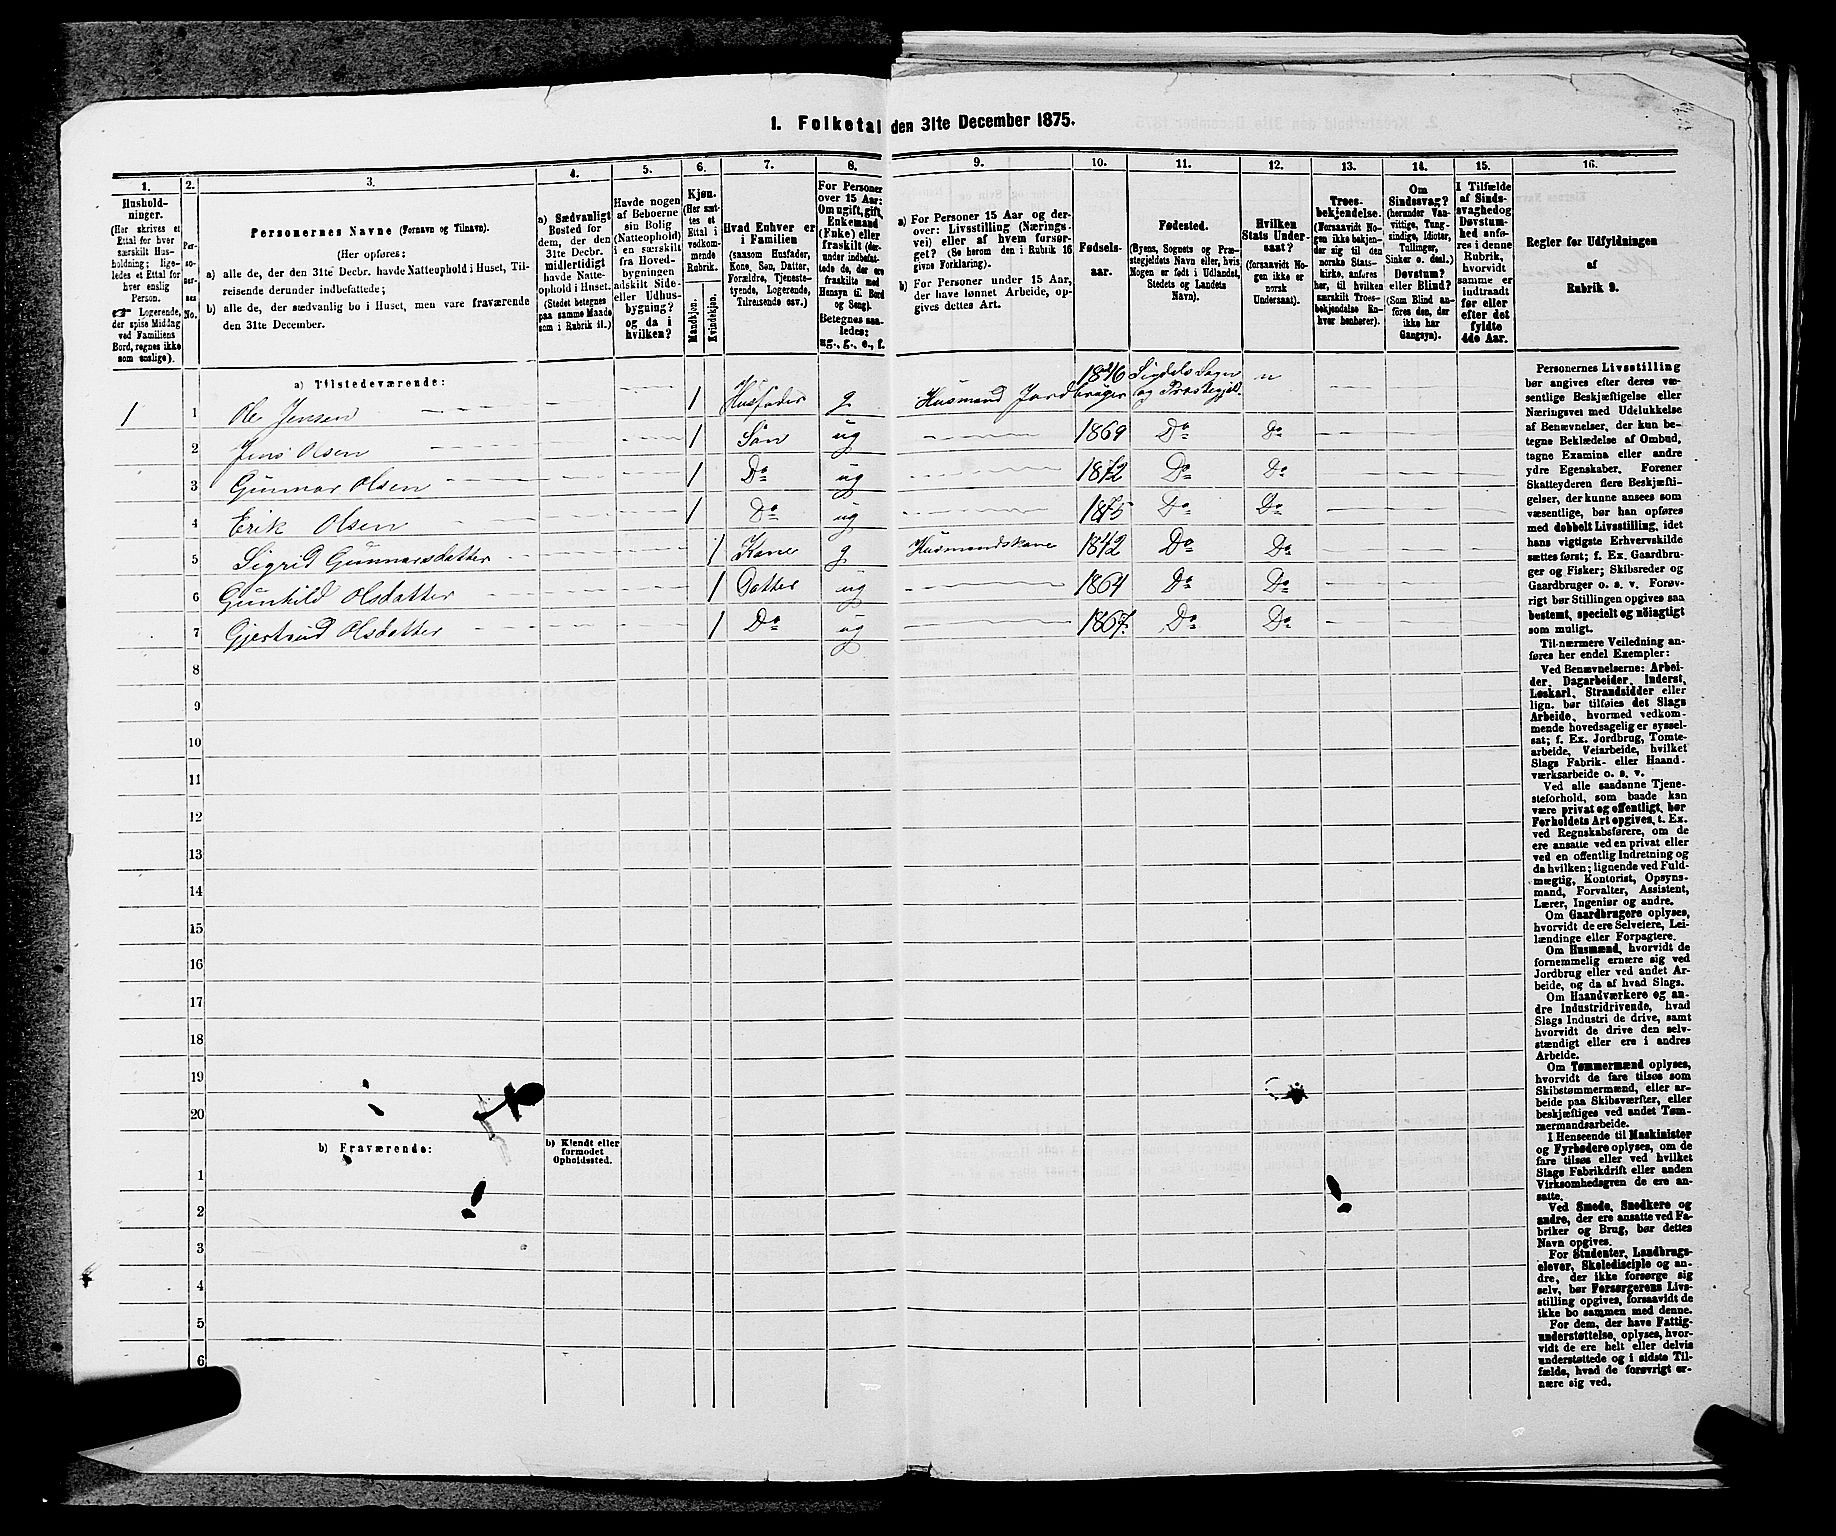 1. Folketal den 31te December 1875.
1. 2. 3. 4. 5. 6. 7. 8. 9. 10. 11. 12. 13. 14. 15. 16.
Hushold-
ninger.
(Her skrives et
Ettal for hver
særskilt Hus-
holdning; lige-
ledes et Ettal for
hver enslig
Person.
☛ Logerende,
der spise Middag
ved Familiens
Bord, regnes ikke
som enslige).
Per-
so-
ner-
nes
No.
Personernes Navne (Fornavn og Tilnavn).
(Her opføres:
a) alle de, der den 31te Decbr. havde Natteophold i Huset, Til-
reisende derunder indbefattede;
b) alle de, der sædvanlig bo i Huset, men vare fraværende
den 31te December.
a) Sædvanligt
Bosted for
dem, der den
31te Decbr.
midlertidigt
havde Natte-
ophold i Huset.
(Stedet betegnes
paa samme Maade
som i Rubrik 11.)
Havde nogen
af Beboerne
sin Bolig
(Natteophold)
i en særskilt
fra Hoved-
bygningen
adskilt Side-
eller Udhus-
bygning?
og da i
hvilken?
Kjøn.
(Her sæt-
tes et
Ettal i
vedkom-
mende
Rubrik.
Mandkjøn.
Kvindekjøn.
Hvad Enhver er
i Familien
(saasom Husfader,
Kone, Søn, Datter,
Forældre, Tjeneste-
tyende, Logerende,
Tilreisende osv.)
For Personer
over 15 Aar:
Om ugift, gift,
Enkemand
(Enke) eller
fraskilt (der-
under indbefat-
tede de, der ere
fraskilte med
Hensyn til Bord
og Seng).
Betegnes saa-
ledes:
ug., g., e., f.
a) For Personer 15 Aar og der-
over: Livsstilling (Nærings-
vei) eller af hvem forsør-
get? (Se herom den i Rubrik 16
givne Forklaring).
b) For Personer under 15 Aar,
der have lønnet Arbeide, op-
gives dettes Art.
Fødsels-
aar.
Fødested.
(Byens, Sognets og Præ-
stegjeldets Navn eller, hvis
Nogen er født i Udlandet,
Stedets og Landets
Navn).
Hvilken
Stats Under-
saat?
(forsaavidt No-
gen ikke er
norsk
Undersaat).
Troes-
bekjendelse.
(Forsaavidt No-
gen ikke bekjen-
der sig til den
norske Stats-
kirke, anføres
her, til hvilken
særskilt Troes-
bekjendelse En-
hver henhører).
Om
Sindssvag?
(herunder Van-
vittige, Tung-
sindige, Idioter,
Tullinger,
Sinker o. desl.)
Døvstum?
eller Blind?
(Som Blind an-
føres den, der
ikke har
Gangsyn).
I Tilfælde
af Sinds-
svaghed og
Døvstum-
hed anfø-
res i denne
Rubrik,
hvorvidt
samme er
indtraadt
før eller
efter det
fyldte
4de Aar.
Regler for Udfyldningen
af
Rubrik 9.
a) Tilstedeværende:
1 1 Ole Jensen 1 Husfader g Husmand Jordbruger 1846 Sigdals Sogn og Præstegjeld n
2 Jens Olsen 1 Søn ug 1869 Do Do
3 Gunnar Olsen 1 Do ug 1872 Do Do
4 Erik Olsen 1 Do ug 1875 Do Do
5 Sigrid Gunnarsdatter 1 Kone g Husmandskone 1842 Do Do
6 Gunhild Olsdatter 1 Datter ug 1864 Do Do
7 Gjertrud Olsdatter 1 Do ug 1867 Do Do
8
9
10
11
12
13
14
15
16
17
18
19
20
b) Fraværende:
b) Kjendt eller
formodet
Opholdssted.
1
2
3
4
5
6
Personernes Livsstilling
bør angives efter deres væ-
sentlige Beskjæftigelse eller
Næringsvei med Udelukkelse
af Benævnelser, der kun be-
tegne Beklædelse af Ombud,
tagne Examina eller andre
ydre Egenskaber. Forener
Skatteyderen flere Beskjæfti-
gelser, der kunne ansees som
væsentlige, bør han opføres
med dobbelt Livsstilling, idet
hans vigtigste Erhvervskilde
sættes først; f. Ex. Gaardbru-
ger og Fisker; Skibsreder og
Gaardbruger o. s. v. Forøv-
rigt bør Stillingen opgives saa
bestemt, specielt og nöiagtigt
som muligt.
Til nærmere Veiledning an-
føres her endel Exempler:
Ved Benævnelserne: Arbei-
der, Dagarbeider, Inderst,
Løskarl, Strandsidder eller
lign. bør tilføies det Slags
Arbeide, hvormed vedkom-
mende hovedsagelig er syssel-
sat; f. Ex. Jordbrug, Tomte-
arbeide, Veiarbeide, hvilket
Slags Fabrik- eller Haand-
værksarbeide o. s. v.
Ved alle saadanne Tjene-
steforhold, som baade kan
være privat og offentligt, bør
Forholdets Art opgives, t. Ex.
ved Regnskabsførere, om de
ere ansatte ved en privat eller
ved en offentlig Indretning og
da hvilken; lignende ved Fuld-
mægtig, Kontorist, Opsyns-
mand, Forvalter, Assistent,
Lærer, Ingeniør og andre.
Om Gaardbrugere oplyses,
hvorvidt de ere Selveiere, Lei-
lændinge eller Forpagtere.
Om Husmænd, hvorvidt de
fornemmelig ernære sig ved
Jordbrug eller ved andet Ar-
beide, og da af hvad Slags.
Om Haandværkere og an-
dre Industridrivende, hvad
Slags Industri de drive, samt
hvorvidt de drive den selv-
stændigt eller ere i andres
Arbeide.
Om Tømmermænd oplyses,
hvorvidt de fare tilsøs som
Skibstømmermænd, eller ar-
beide paa Skibsværfter, eller
beskjæftiges ved andet Tøm-
mermandsarbeide.
I Henseende til Maskinister
og Fyrbødere oplyses, om de
fare tilsøs eller ved hvilket
Slags Fabrikdrift eller anden
Virksomhedsgren de ere an-
satte.
Ved Smede, Snedkere og
andre, der ere ansatte ved Fa-
briker og Brug, bør dettes
Navn opgives.
For Studenter, Landbrugs-
elever, Skoledisciple og an-
dre, der ikke forsørge sig
selv, bør Forsørgerens Livs-
stilling opgives, forsaavidt de
ikke bo sammen med denne.
For dem, der have Fattig-
understøttelse, oplyses, hvor-
vidt de ere helt eller delvis
understøttede og i sidste Til-
fælde, hvad de forøvrigt er-
nære sig ved.